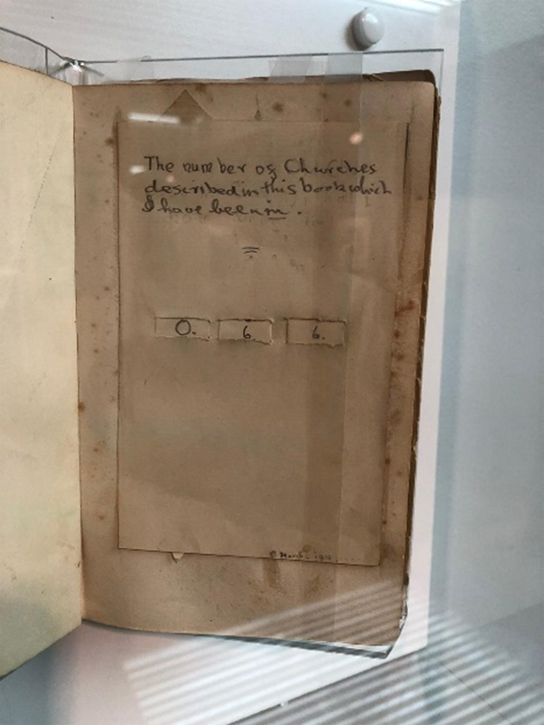 The number of Churches
described in this book which
I have been in.
0. 6. 6.